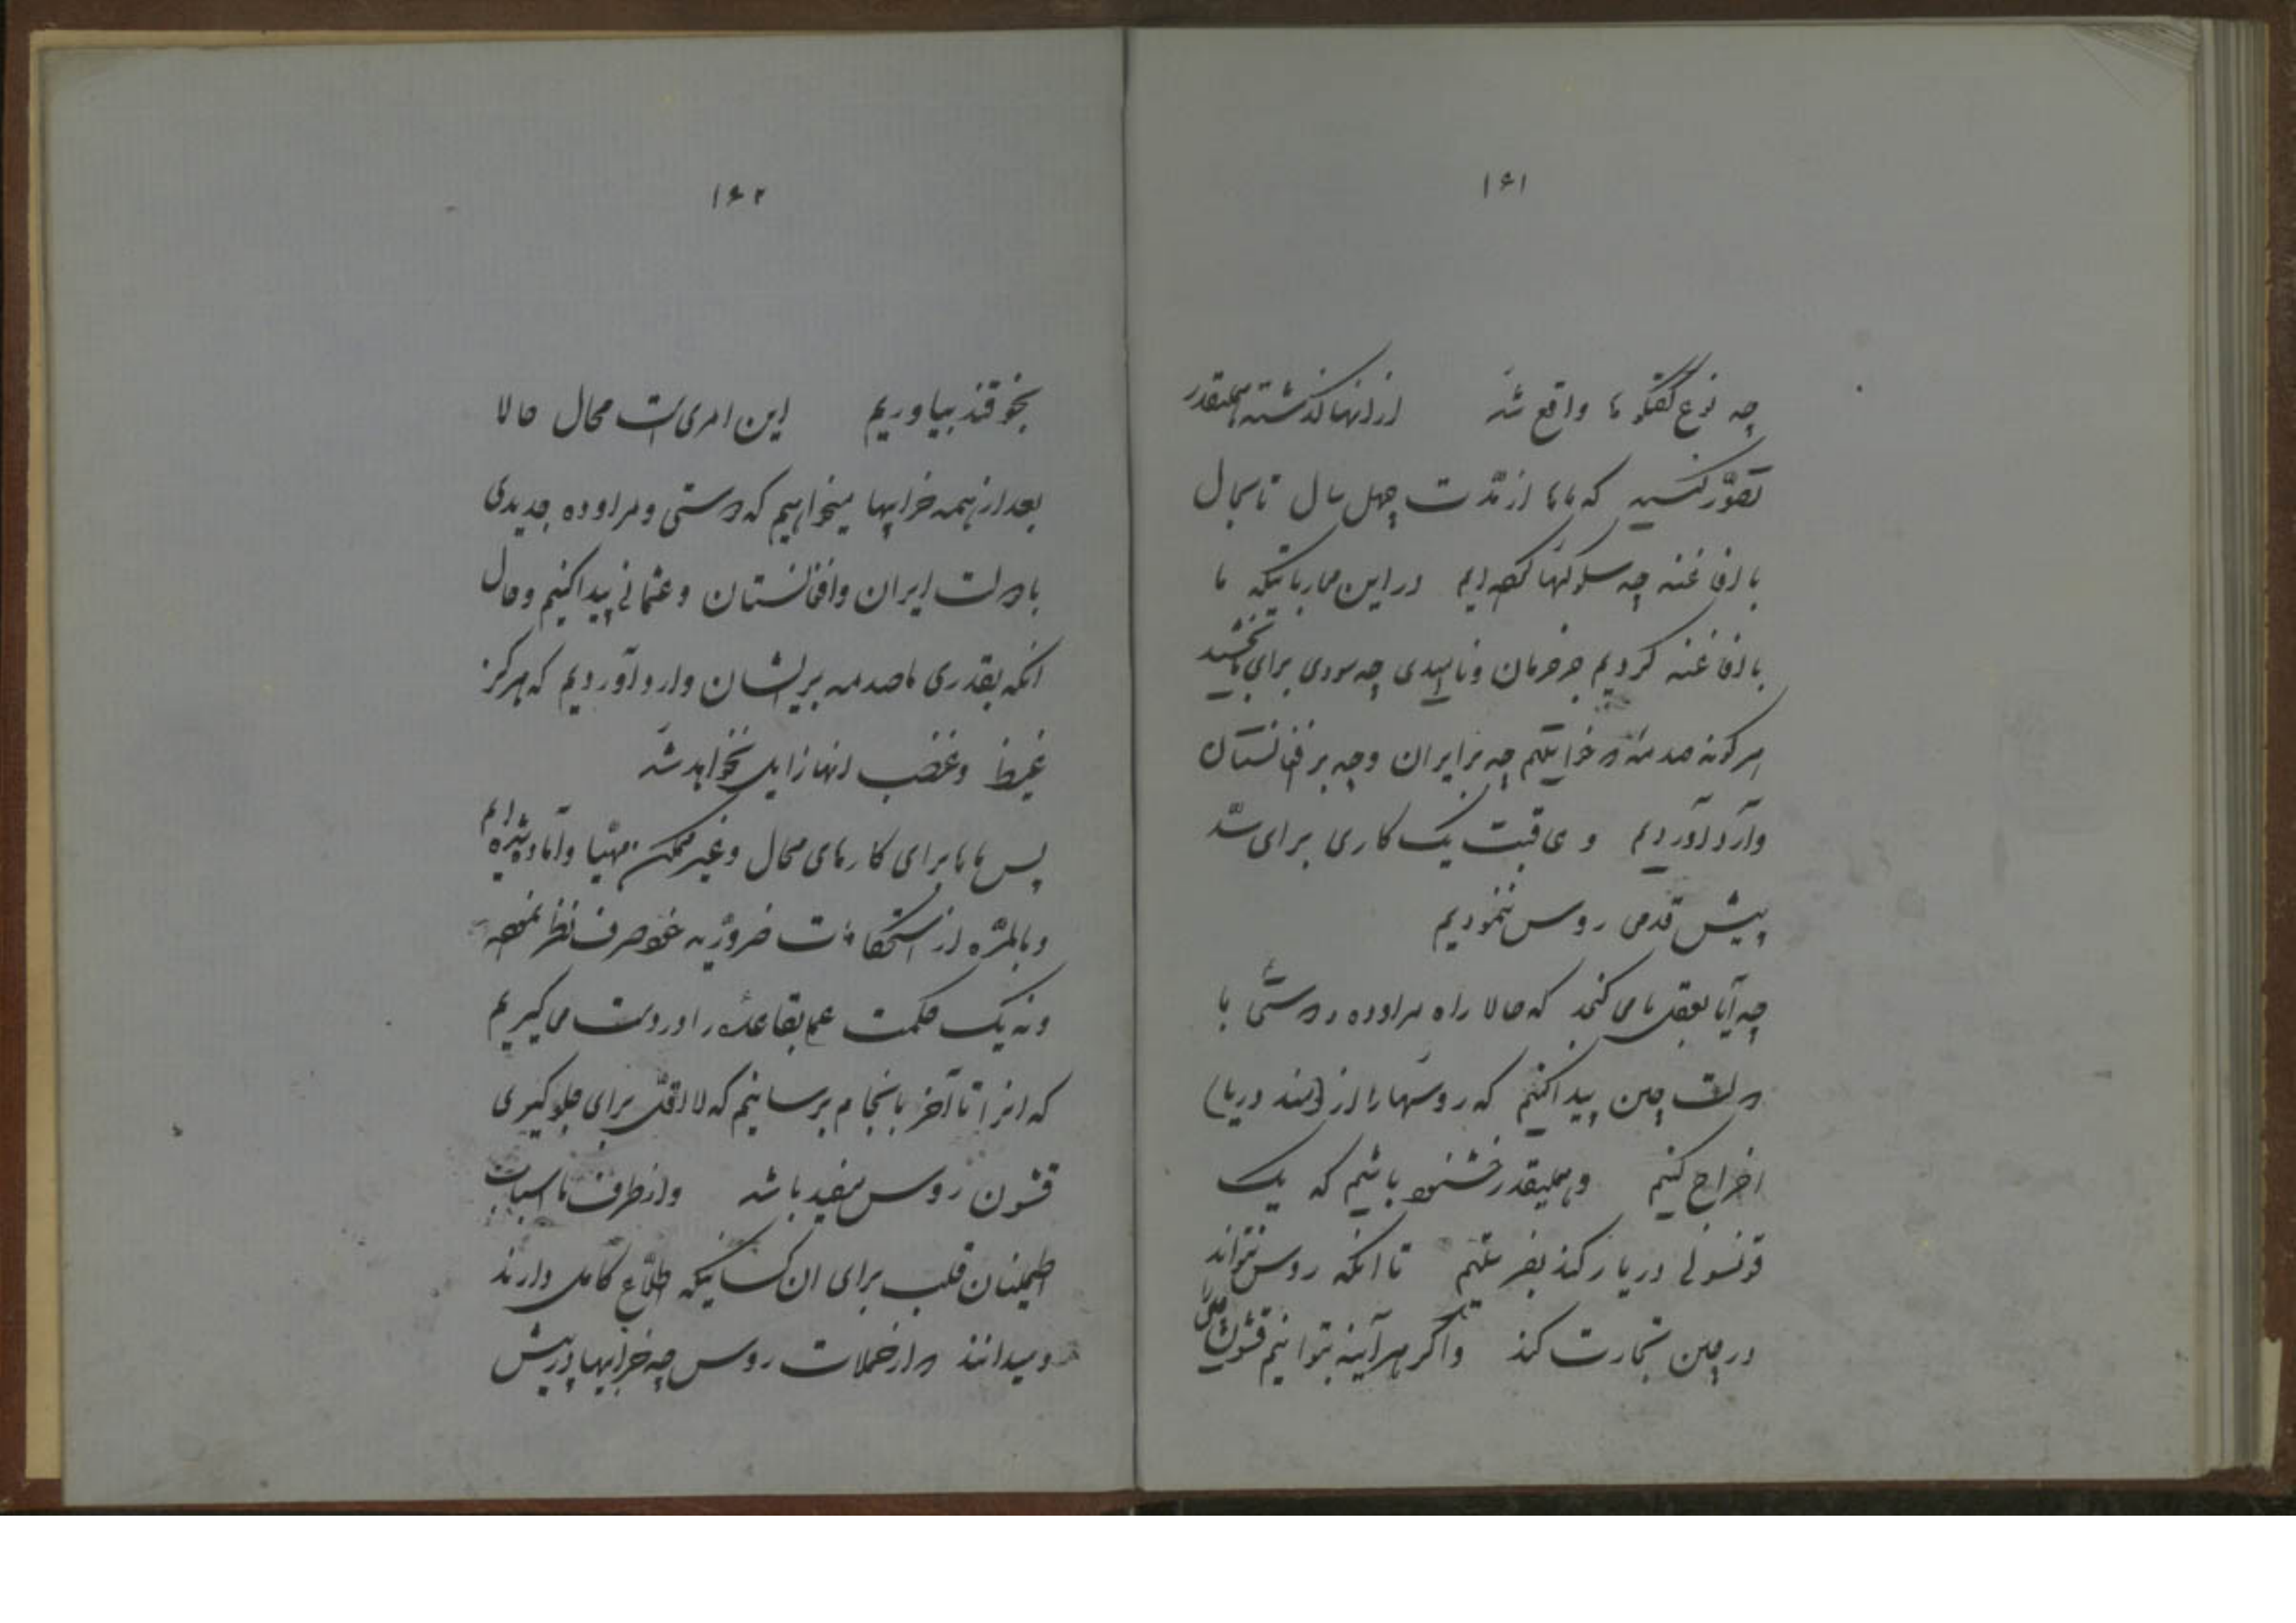 ۱۶۱
چه نوع گفتگوها واقع شد از انها گذشته همینقدر
تصوّر کنید که ماها از مدّت چهل سال تا بحال
با افاغنه چه سلوکها کرده‌ایم در این محارباتیکه ما
با افاغنه کردیم جز حرمان و ناامیدی چه سودی برای ما بخشید
هر گونه صدمه و خرابیکه چه بر ایران و چه بر افغانستان
وارد آوردیم و عاقبت یک کاری برای سدّ
پیش قدمی روس ننمودیم
چه آیا بعقل ما می کنجد که حالا راه مراوده و دوستی با
دولت چین پیدا کنیم که روسها را از (هند دریا)
اخراج کنیم و همینقدر خشنود باشیم که یک
قونسولی در یارکند بفرستیم تا انکه روس نتواند
در چین تجارت کند واگر هرآینه بتوانیم قشون چین را
۱۶۲
بخوقند بیاوریم این امری است محال حالا
بعد از همه خرابیها میخواهیم که دوستی و مراوده جدیدی
با دولت ایران وافغانستان و عثمانی پیدا کنیم وحال
انکه بقدری ما صدمه بریشان وارد آوردیم که هرکز
غیظ و غضب انها زایل نخواهد شد
پس ماها برای کارهای محال و غیر ممکن مهیّا و آماده شده ایم
و بالمرّه از استحکامات ضروریّه خود صرف نظر نموده
و نه یک حکمت عملیقاعده را در دست می کیریم
که انرا تا آخر بانجام برسانیم که لااقل برای جلوکیری
قشون روس مفید باشد و از طرف ما اسباب
اطمینان قلب برای ان کسانیکه اطلّاع کامل دارند
و میدانند که از حملات روس چه خرابیها در پیش